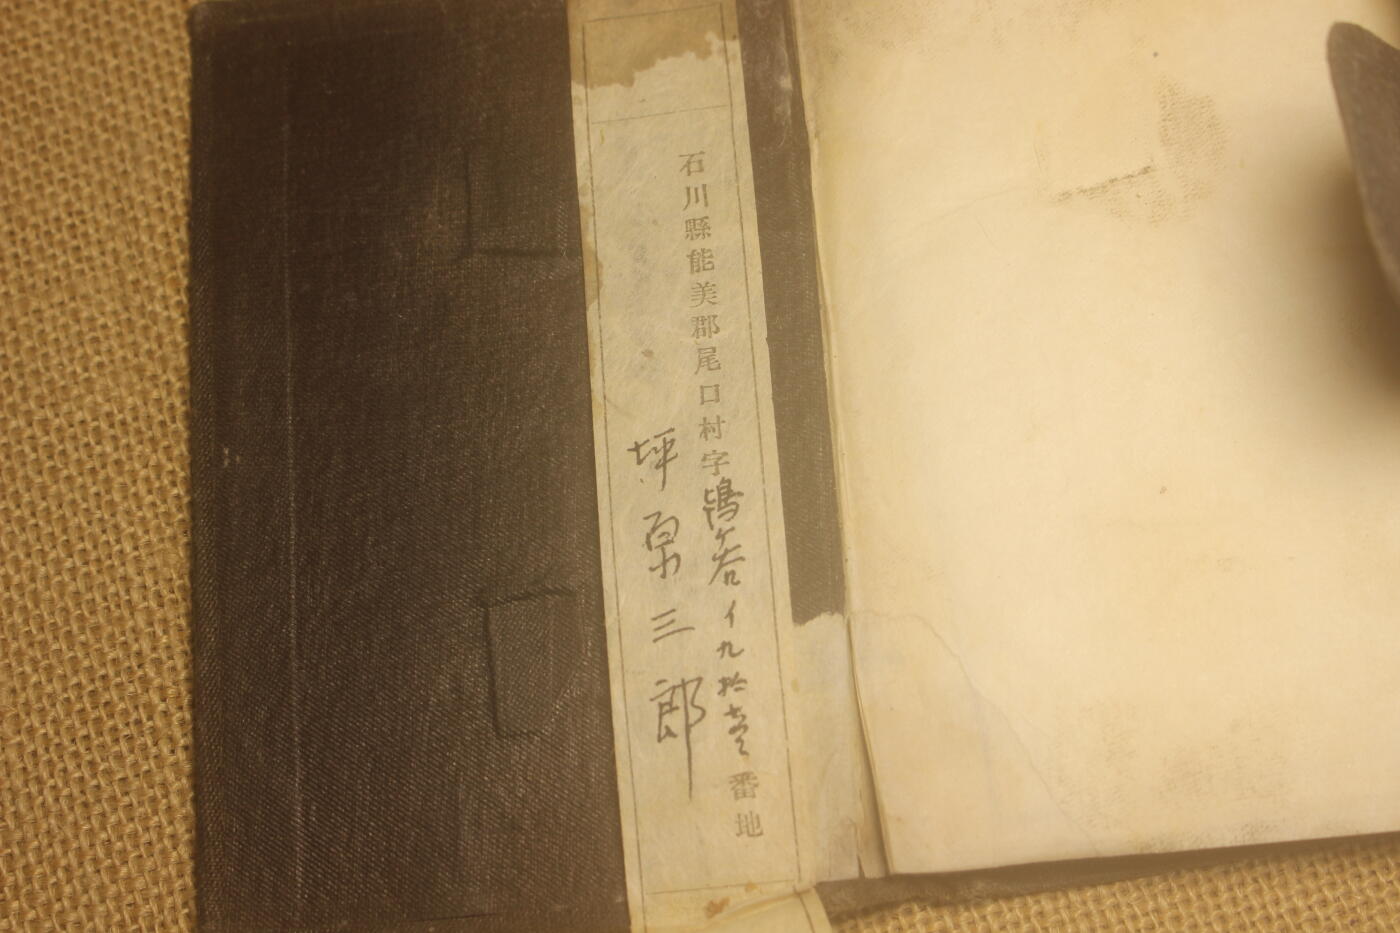 石川縣能美郡尾口村字鴇ヶ谷イ九拾壱番地
坪栗三郎